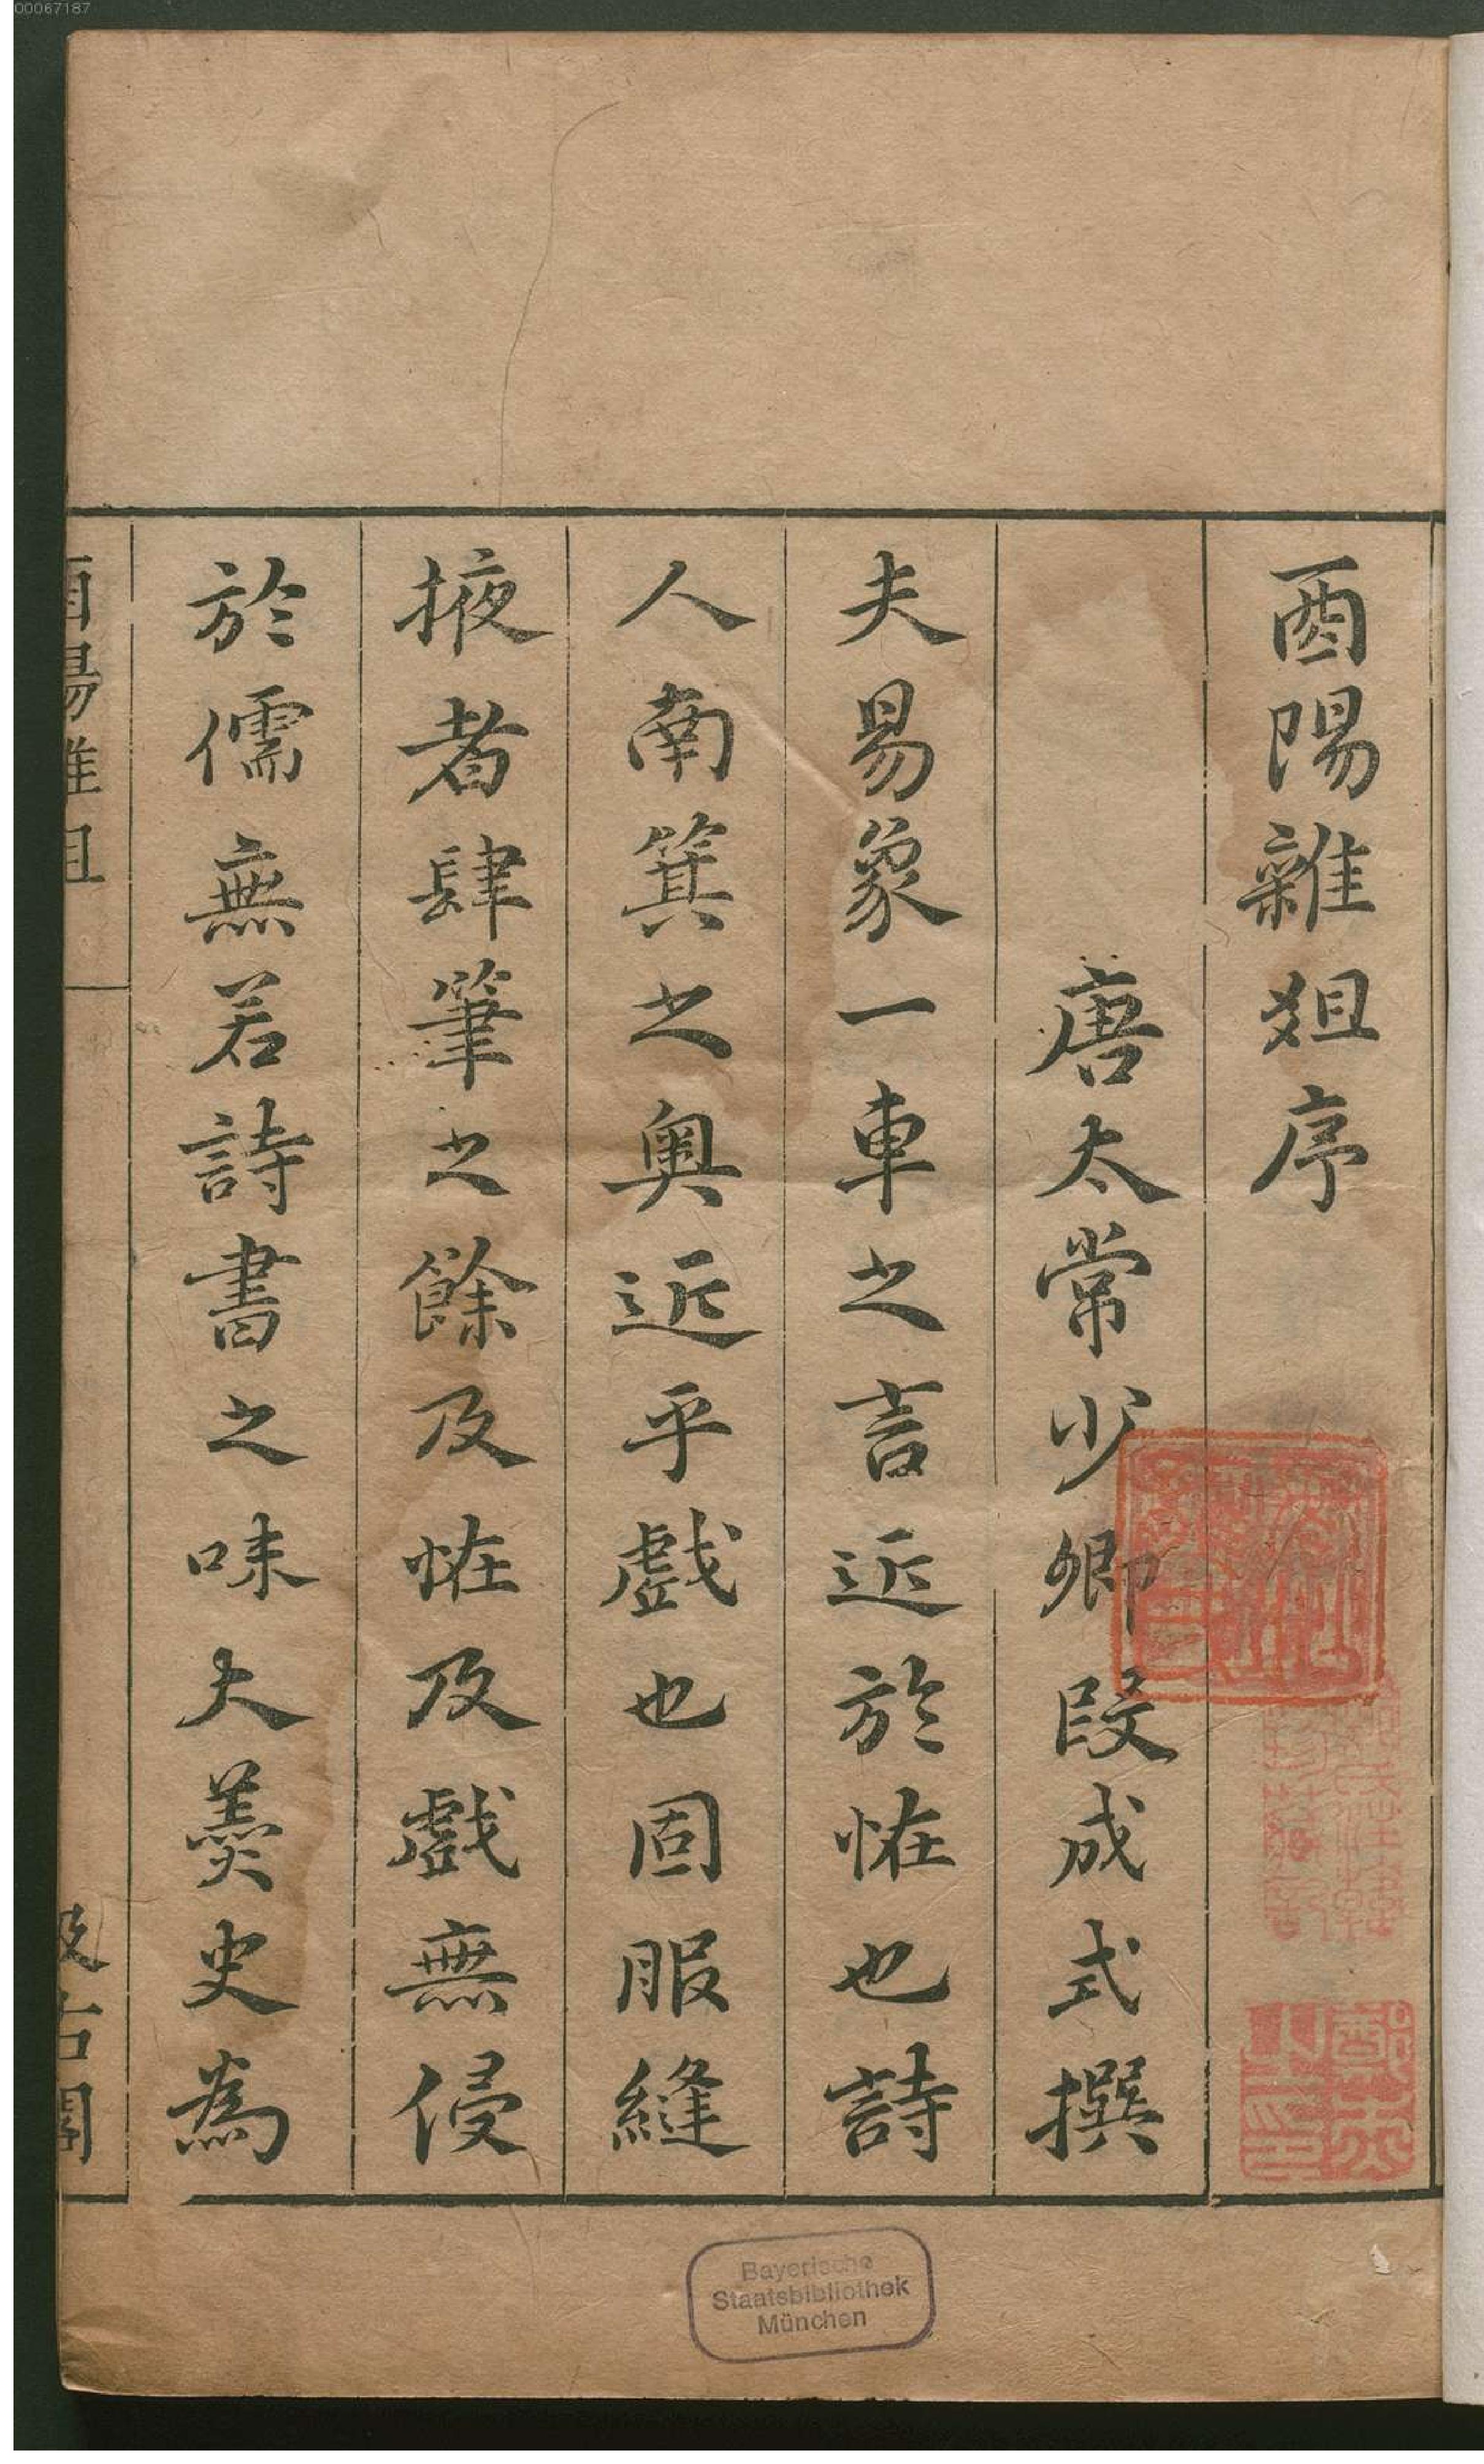 00067187
酉陽雜俎序
唐太常少卿段成式撰
夫易象一車之言近於怪也詩
人南箕之奧近乎戲也固服縫
掖者肆筆之餘及怪及戲無侵
於儒無若詩書之味大羹史為
酉陽雜俎
汲古閣
Bayerische
Staatsbibliothek
München